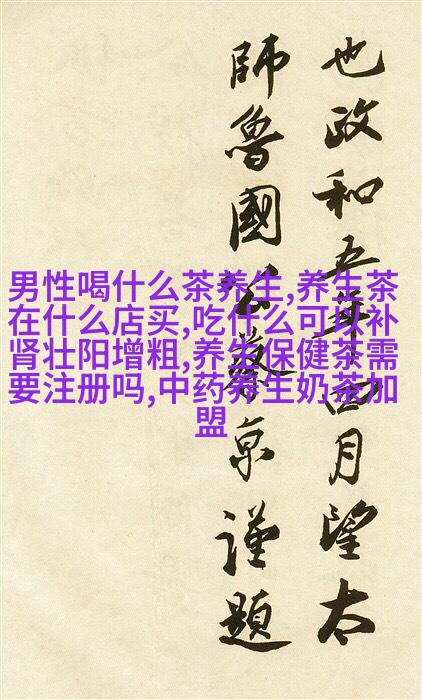 也政和五年四月望太
師魯國公蔡京謹題
男性喝什么茶养生,养生茶
在什么店买,吃什么可以补
肾壮阳增粗,养生保健茶需
要注册吗,中药养生奶茶加
盟